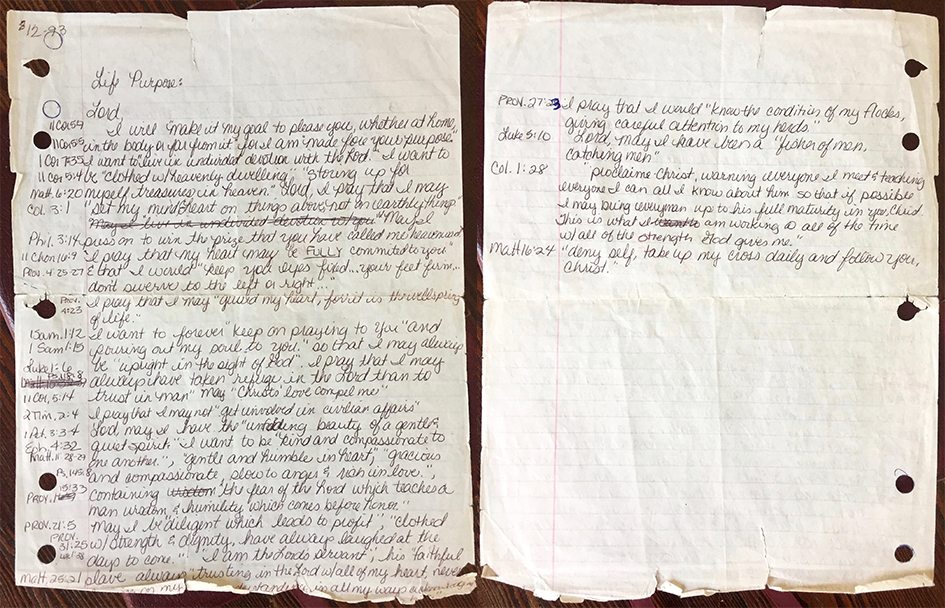 3 12-93
Life Purpose:
Lord,
II Cor. 5:9 I will "make it my goal to please you, whether at home
II Cor. 5:5 in the body or away from it" for I am made for your purpose.
I Cor 7:35 I want to live in undivided devotion with the Lord. I want to
II Cor 5:4 be "clothed w/ heavenly dwelling," "storing up for
Matt. 6:20 myself, treasures in heaven." Lord, I pray that I may
Col. 3:1 "set my mind/heart on things above, not on earthly things"
May I live in undivided devotion to you" May I
Phil. 3:14 press on to win the prize that you have called me heavenward
II Chron 16:9 I pray that my heart may be FULLY commited to you"
Prov. 4:25-27 & that I would "keep your eyes fixed... your feet firm...
don't swerve to the left or right"...
Prov. 4:23 I pray that I may "guard my heart, for it is the wellspring
of life."
1 Sam. 1:12 I want to forever "keep on praying to You" and
1 Sam 1:15 "pouring out my soul to you," so that I may always
Luke 1:6 be "upright in the sight of God". I pray that I may
Ps. 118:8 always have taken refuge in the Lord than to
II Cor. 5:14 trust in man" may "Christ's love compel me"
2 Tim. 2:4 I pray that I may not "get involved in civilian affairs"
1 Pet. 3:3-4 Lord, may I have the "unfading beauty of a gentle &
Eph. 4:32 quiet spirit" I want to be "kind and compassionate to
Matt. 11:28-29 one another.", "gentle and humble in heart," "gracious
Ps. 145:8 and compassionate, slow to anger & rich in love.",
Prov. 15:33 containing wisdom the fear of the Lord which teaches a
man wisdom & humility which comes before honor."
Prov. 21:5 May I be diligent which leads to profit", "clothed
Prov. 31:25 w/ strength & dignity, have always laughed at the
days to come." "I am the Lord's servant", his faithful
Matt. 25:21 slave always "trusting in the Lord w/ all of my heart, never
on my in all my ways
Prov. 27:23 I pray that I would "know the condition of my flocks,
giving careful attention to my herds."
Luke 5:10 Lord, may I have been a "fisher of men,
catching men"
Col. 1:28 "proclaime Christ, warning everyone I meet & teaching
everyone I can all I know about him so that if possible
I may bring everyman up to his full maturity in you, Christ.
This is what I want to am working @ all of the time
w/ all of the strength God gives me."
Matt 16:24 "deny self, take up my cross daily and follow you,
Christ."